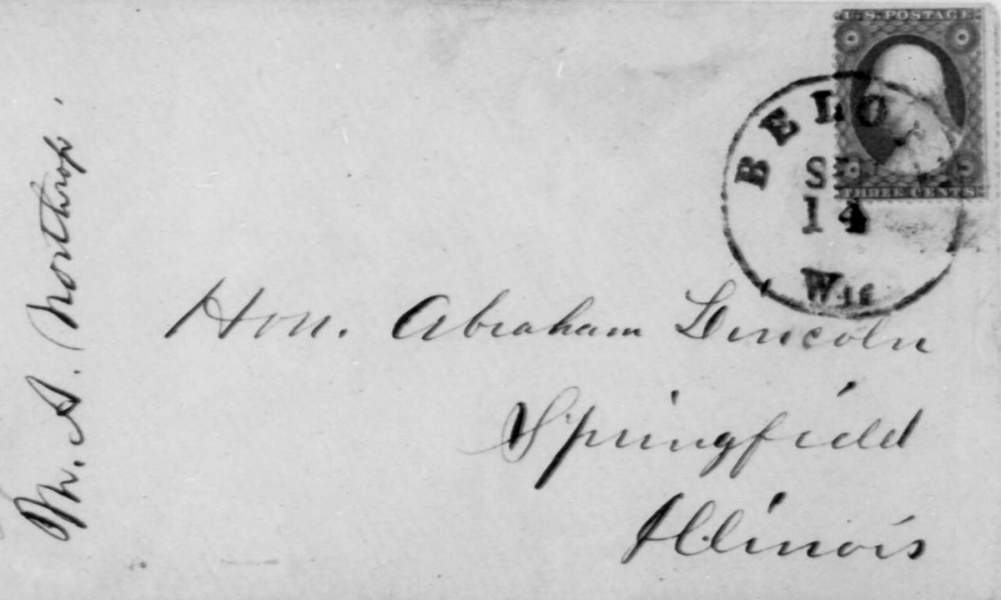 U.S. POSTAGE
BELO
14
Wis
THREE CENTS
Hon. Abraham Lincoln
Springfield
Illinois
M. A. Northrop.